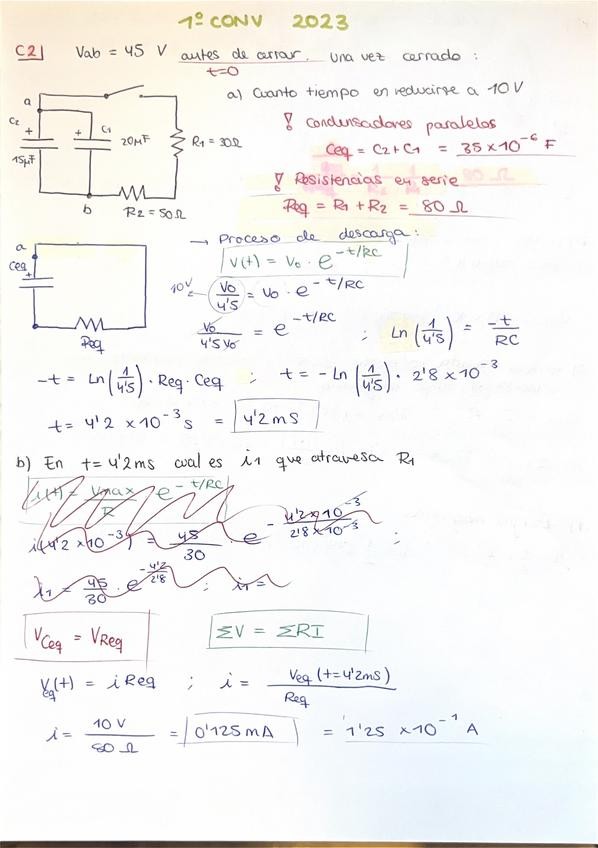 1º CONV 2023
C2| Vab = 45 V antes de cerrar. Una vez cerrado:
t=0
a) Cuanto tiempo en reducirse a 10V
a
C2 + + C1 20μF R1 = 30Ω
15μF
b R2 = 50Ω
! Condensadores paralelos
Ceq = C2 + C1 = 35 x 10^-6 F
! Resistencias en serie
Req = R1 + R2 = 80 Ω
→ Proceso de descarga:
V(t) = V0 · e^-t/RC
a
Ceq +
Req
10V V0/4'5 = V0 · e^-t/RC
V0/4'5V0 = e^-t/RC ; Ln(1/4'5) = -t/RC
-t = Ln(1/4'5) · Req · Ceq ; t = -Ln(1/4'5) · 2'8 x 10^-3
t = 4'2 x 10^-3 s = 4'2 ms
b) En t = 4'2ms cual es i1 que atravesa R1
i(t) = Vmax/R e^-t/RC
i(4'2 x 10^-3) = 45/30 · e^-4'2x10^-3/2'8x10^-3 ;
i1 = 45/30 · e^-4'2/2'8 ; i1 =
VCeq = VReq ΣV = ΣRI
Veq(t) = i Req ; i = Veq(t=4'2ms)/Req
i = 10V/80Ω = 0'125 mA = 1'25 x10^-1 A